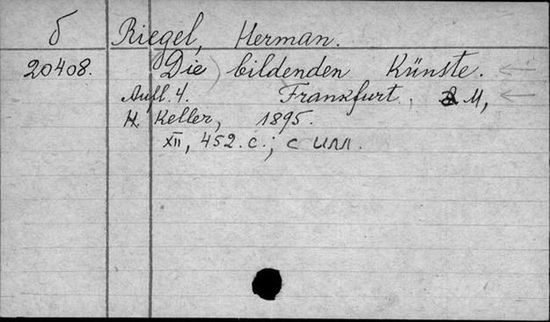 б Riegel, Herman.
20408. Die) bildenden Künste.
Aufl. 4. Frankfurt, a M,
H. Keller, 1895.
XII, 452. с.; с илл.